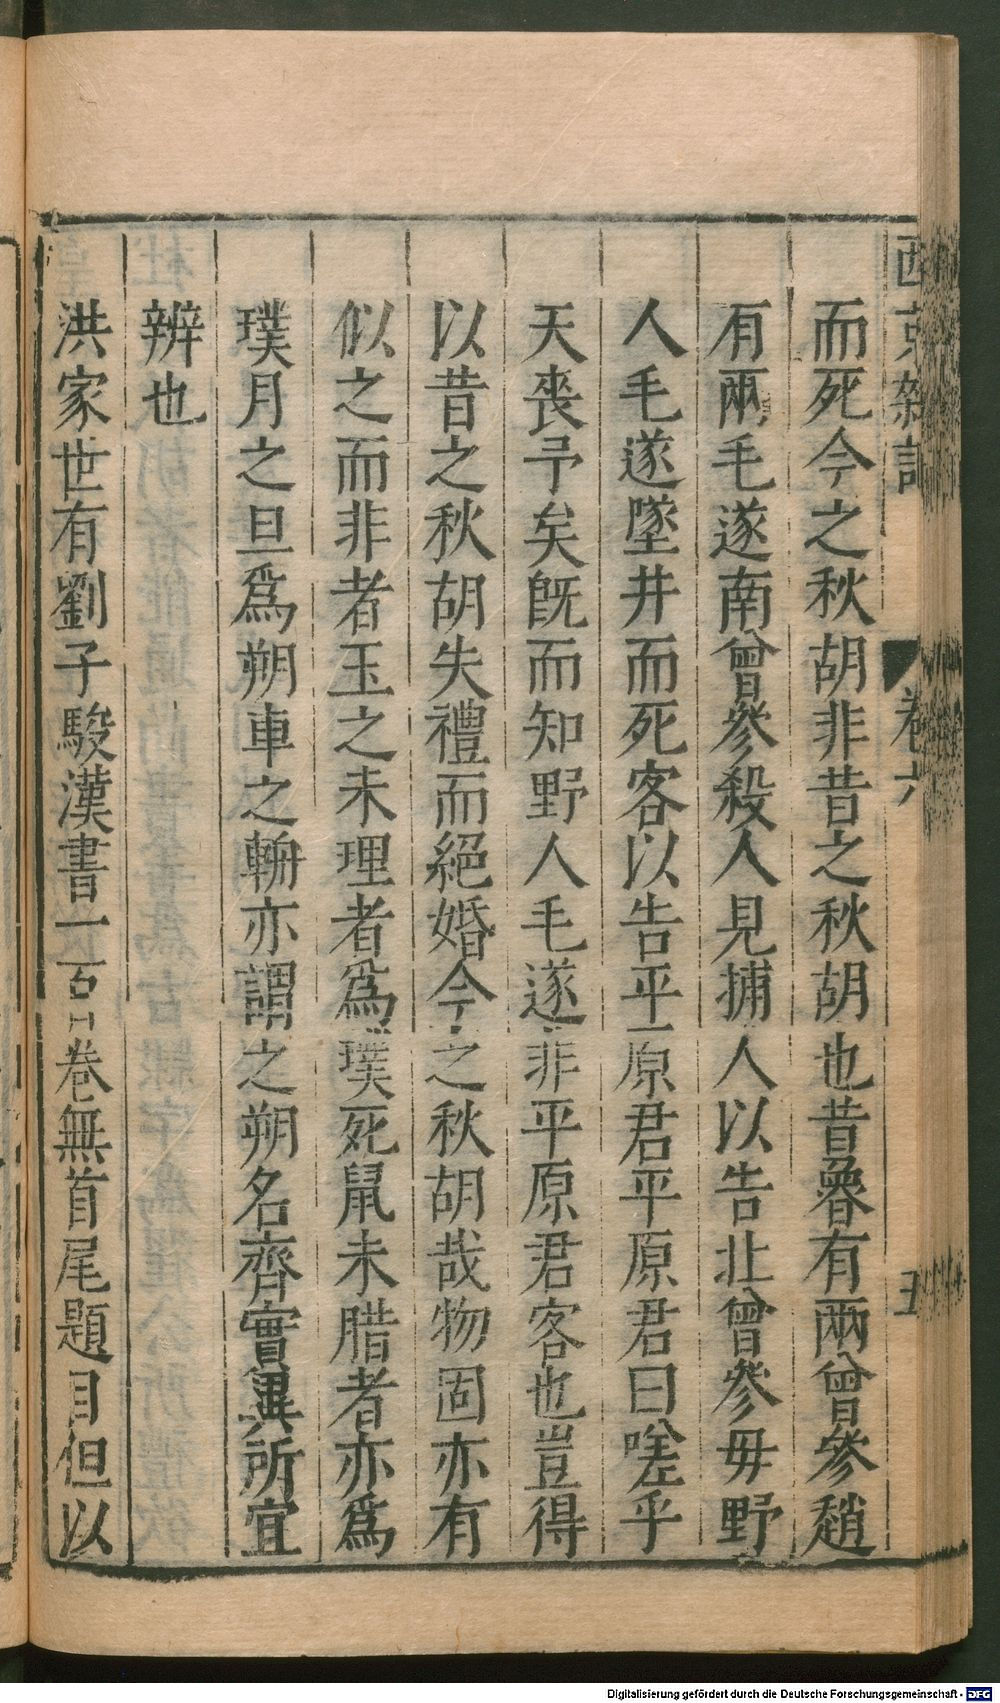 西京雜記
卷六
五
而死今之秋胡非昔之秋胡也昔魯有兩曾參趙
有兩毛遂南曾參殺人見捕人以告北曾參毋野
人毛遂墜井而死客以告平原君平原君曰嗟乎
天喪予矣旣而知野人毛遂非平原君客也豈得
以昔之秋胡失禮而絕婚今之秋胡哉物固亦有
似之而非者玉之未理者爲璞死鼠未腊者亦爲
璞月之旦爲朔車之輈亦謂之朔名齊實異所宜
辨也
洪家世有劉子駿漢書一百卷無首尾題目但以
Digitalisierung gefördert durch die Deutsche Forschungsgemeinschaft - DFG